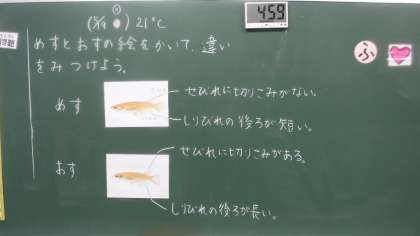 21℃
4:59
めすとおすの絵をかいて、違い
をみつけよう。
めす
せびれに切りこみがない。
しりびれの後ろが短い。
おす
せびれに切りこみがある。
しりびれの後ろが長い。
ふ